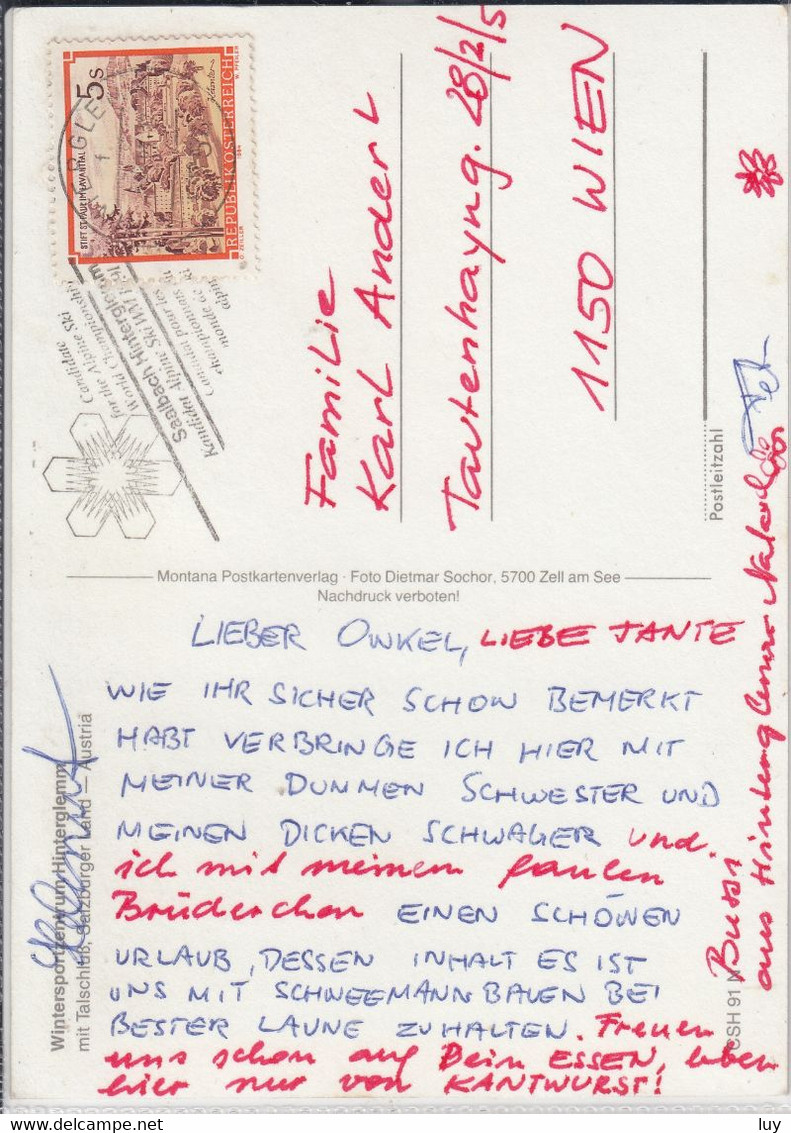 5 S
STIFT ST. PAUL IM LAVANTTAL
Kärnten
REPUBLIK ÖSTERREICH
1984
Candidate
for the Alpine Ski
World Championship
Saalbach Hinterglemm
Kandidat Alpine Ski WM 1991
monde de ski
alpin
Familie
Karl Anderl
Tautenhayng. 28/2/5
1150 WIEN
Postleitzahl
Montana Postkartenverlag · Foto Dietmar Sochor, 5700 Zell am See
Nachdruck verboten!
LIEBER ONKEL, LIEBE TANTE
WIE IHR SICHER SCHON BEMERKT
HABT VERBRINGE ICH HIER MIT
MEINER DUMMEN SCHWESTER UND
MEINEN DICKEN SCHWAGER und
ich mit meinem faulen
Brüderchen EINEN SCHÖNEN
URLAUB, DESSEN INHALT ES IST
UNS MIT SCHNEEMANNBAUEN BEI
BESTER LAUNE ZU HALTEN. Freuen
uns schon auf Dein ESSEN, leben
hier nur von KANTWURST!
Bussi
aus Hinterglemm
Wintersportzentrum Hinterglemm
mit Talschluß, Salzburger Land – Austria
CSH 91 N
luy